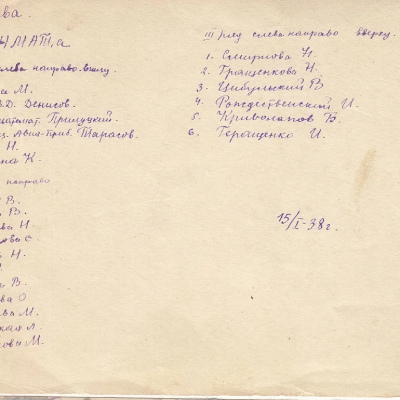 ва.
ЫМАТ,а
слева направо. внизу.
а М.
В.Д. Денисов.
Прилуцкий.
Тарасов.
Н.
на К.
направо
В.
В.
ва Н.
ова С.
Н.
В.
ва О
ва М.
кая Л.
ова М.
III ряд слева направо вверху.
1. Смирнова Н.
2. Грященкова Н.
3. Цибульский В
4. Рождественский И.
5. Криволапов В.
6. Геращенко И.
15/I-38г.